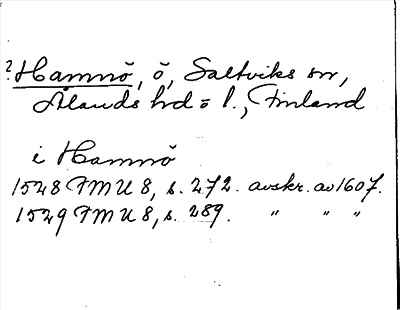 ? Hamnö, ö, Saltviks sn,
Ålands hd o l., Finland
i Hamnö
1528 FMU 8, s. 272. avskr. av 1607.
1529 FMU 8, s. 289. " " "